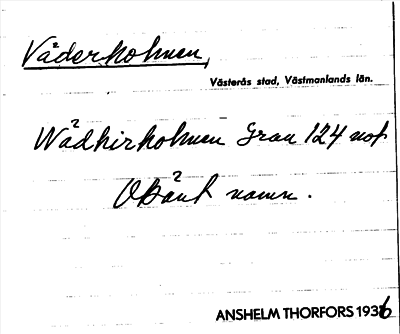 Väderholmen,
Västerås stad, Västmanlands län.
Wädhirholmen Grau 124 not
Obänt namn.
ANSHELM THORFORS 1936